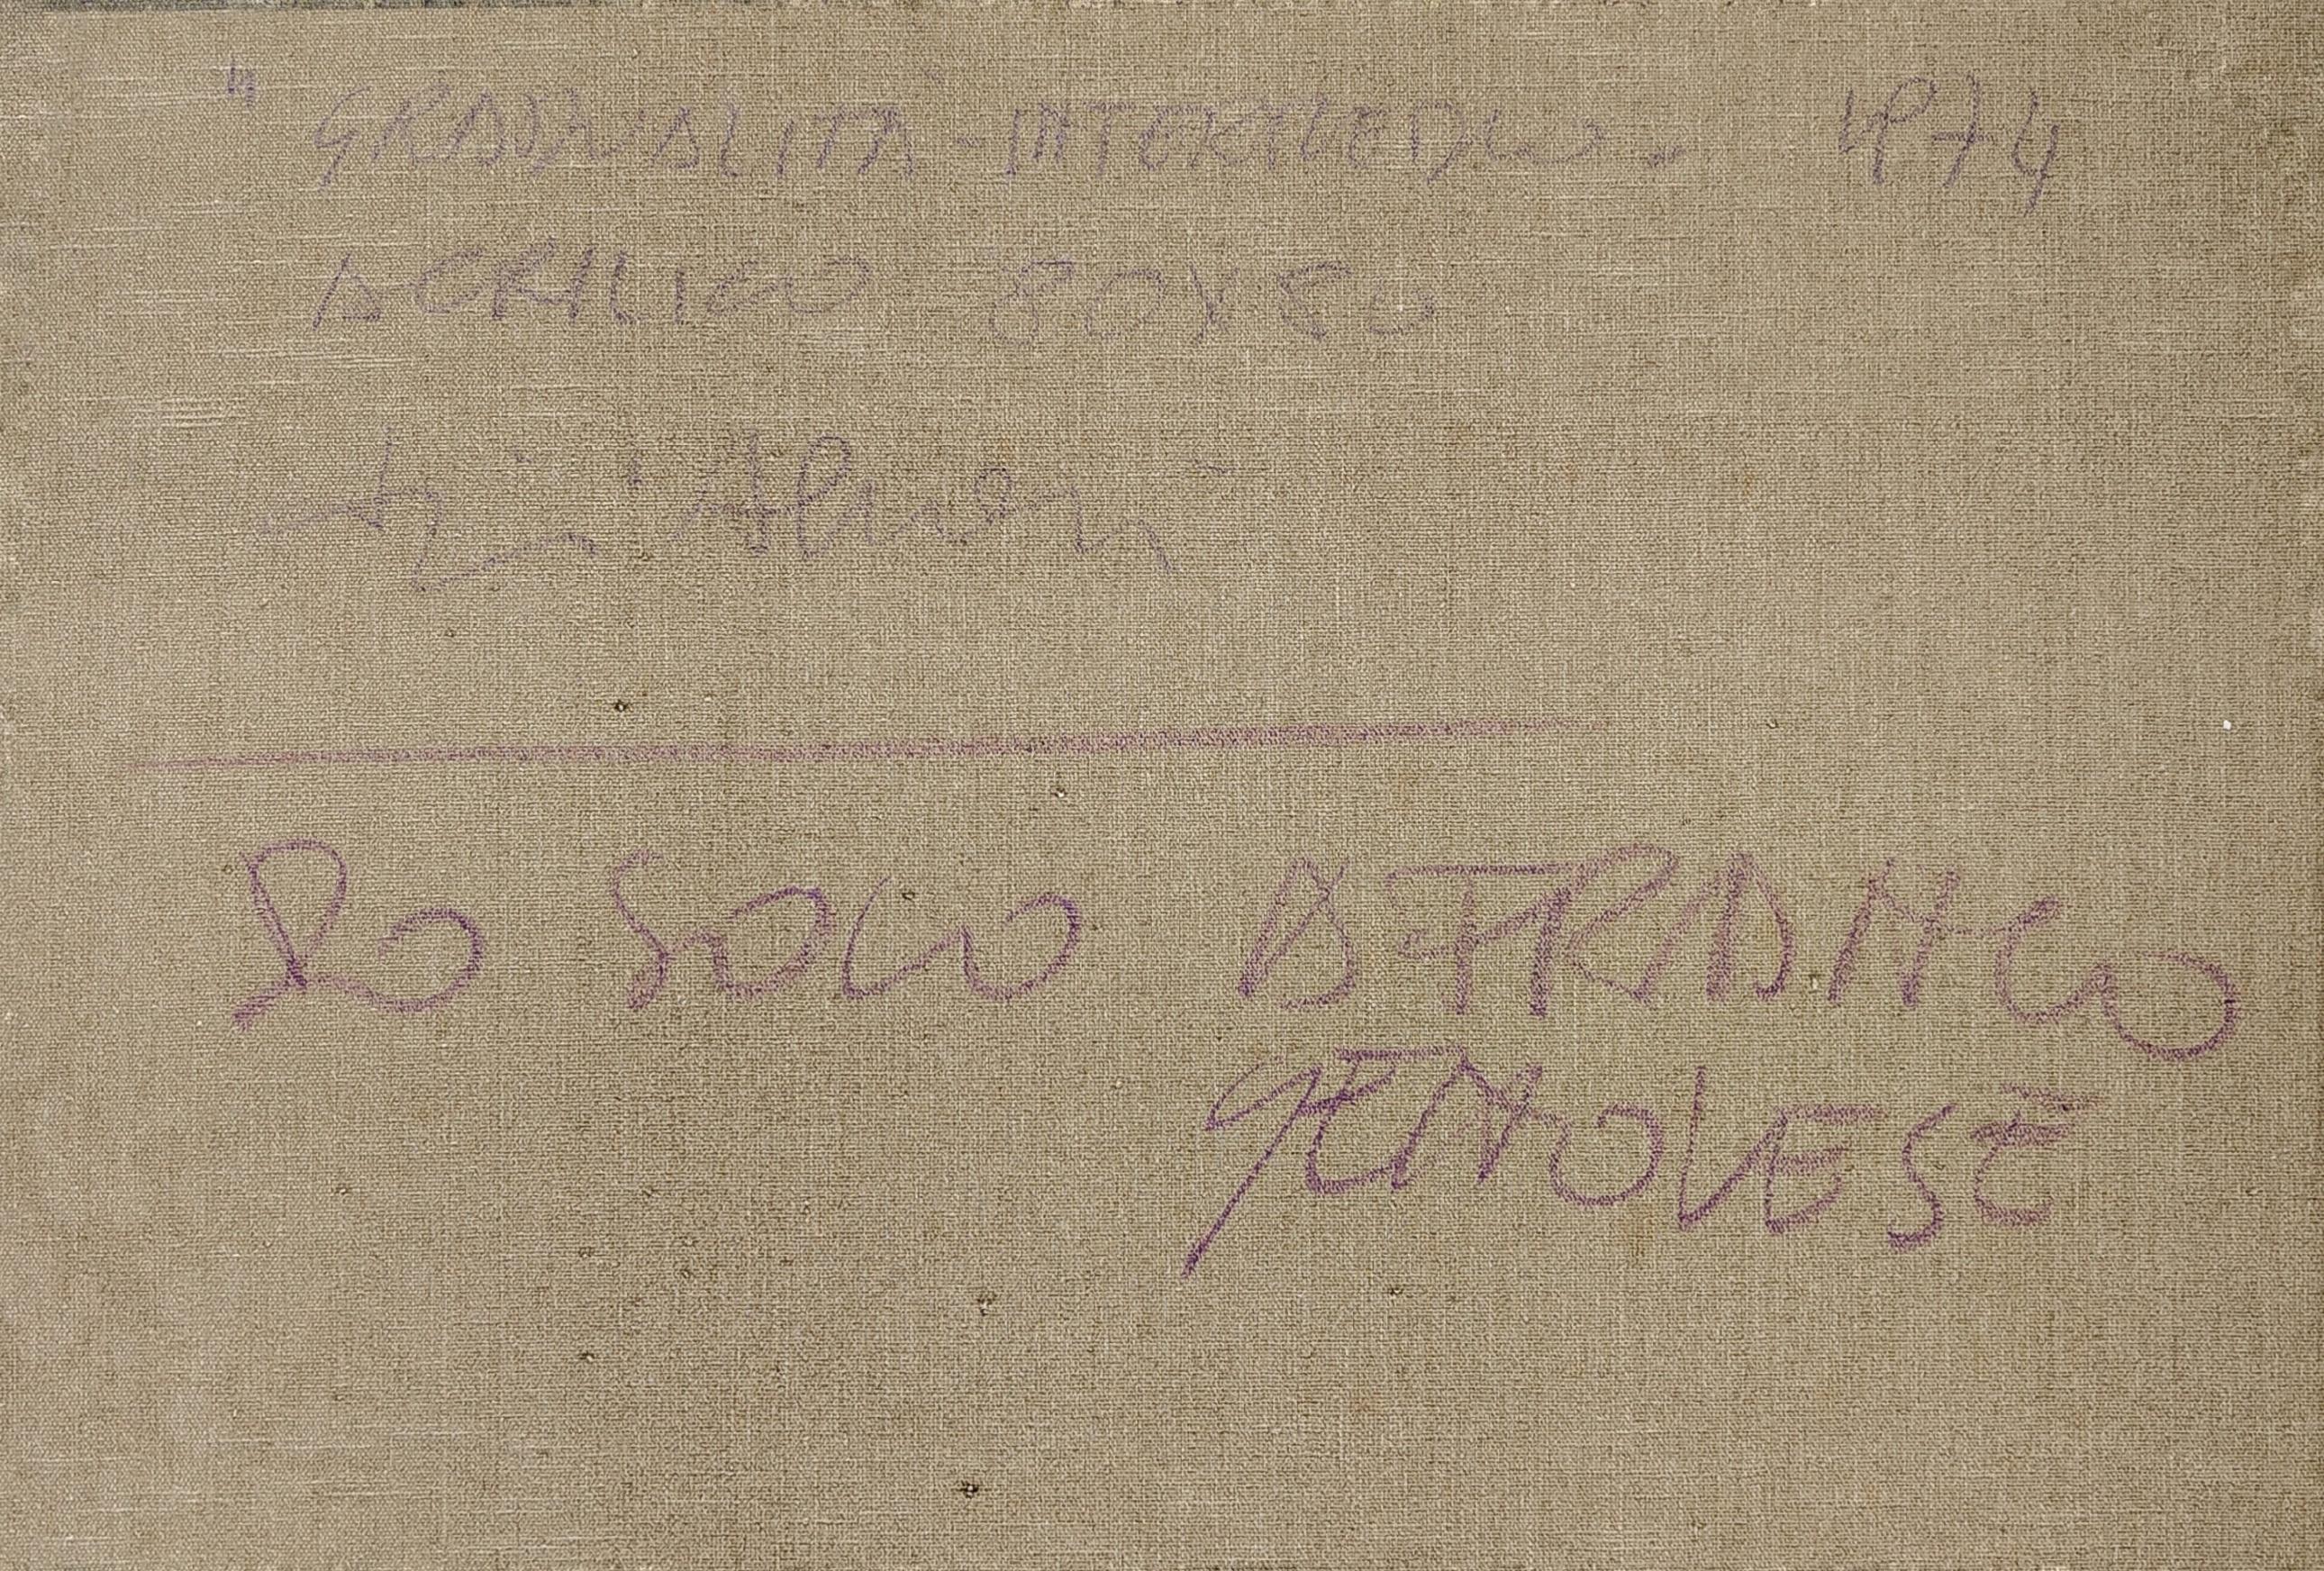 "GRADUALITÀ-INTERMEDIO. 1974
ACRILICO 80X80
DO SOLO A FRANCO
GENOVESE